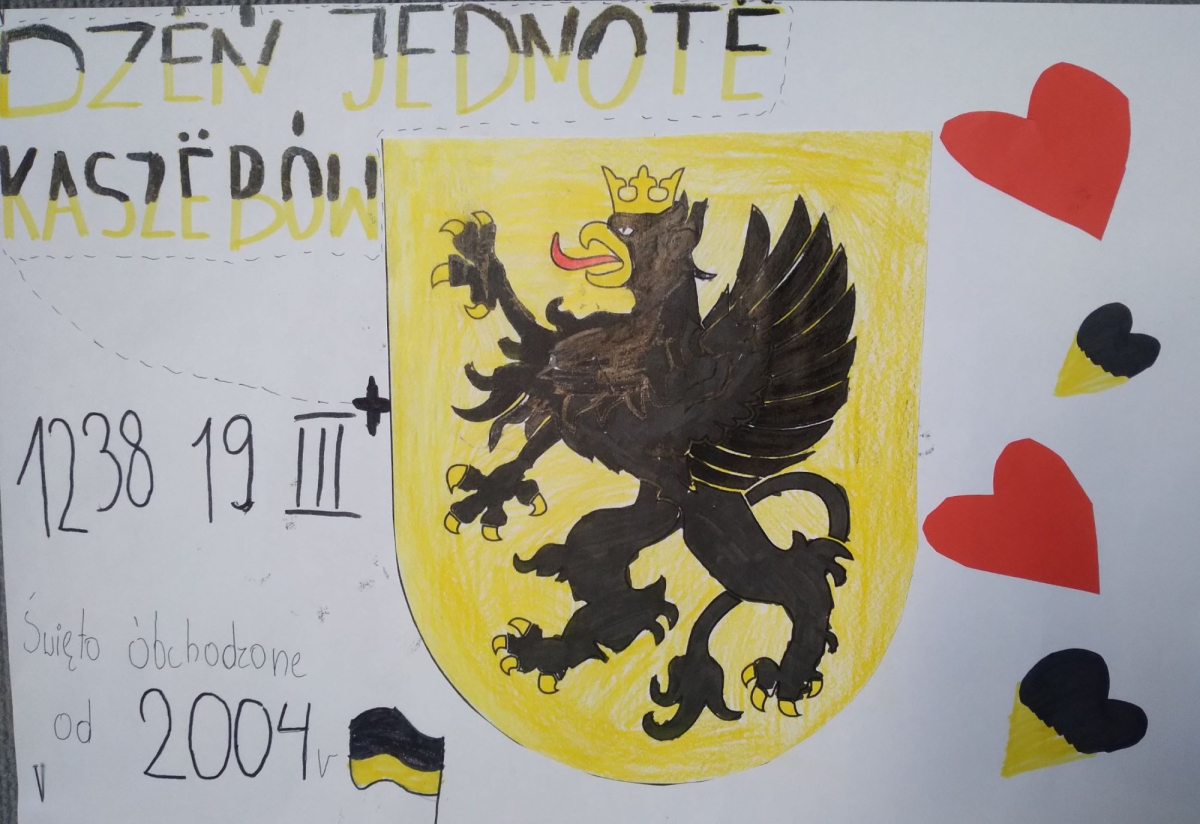 DZÉŃ JEDNOTË
KASZËBÓW
1238 19 III
Święto òbchodzone
od 2004 r